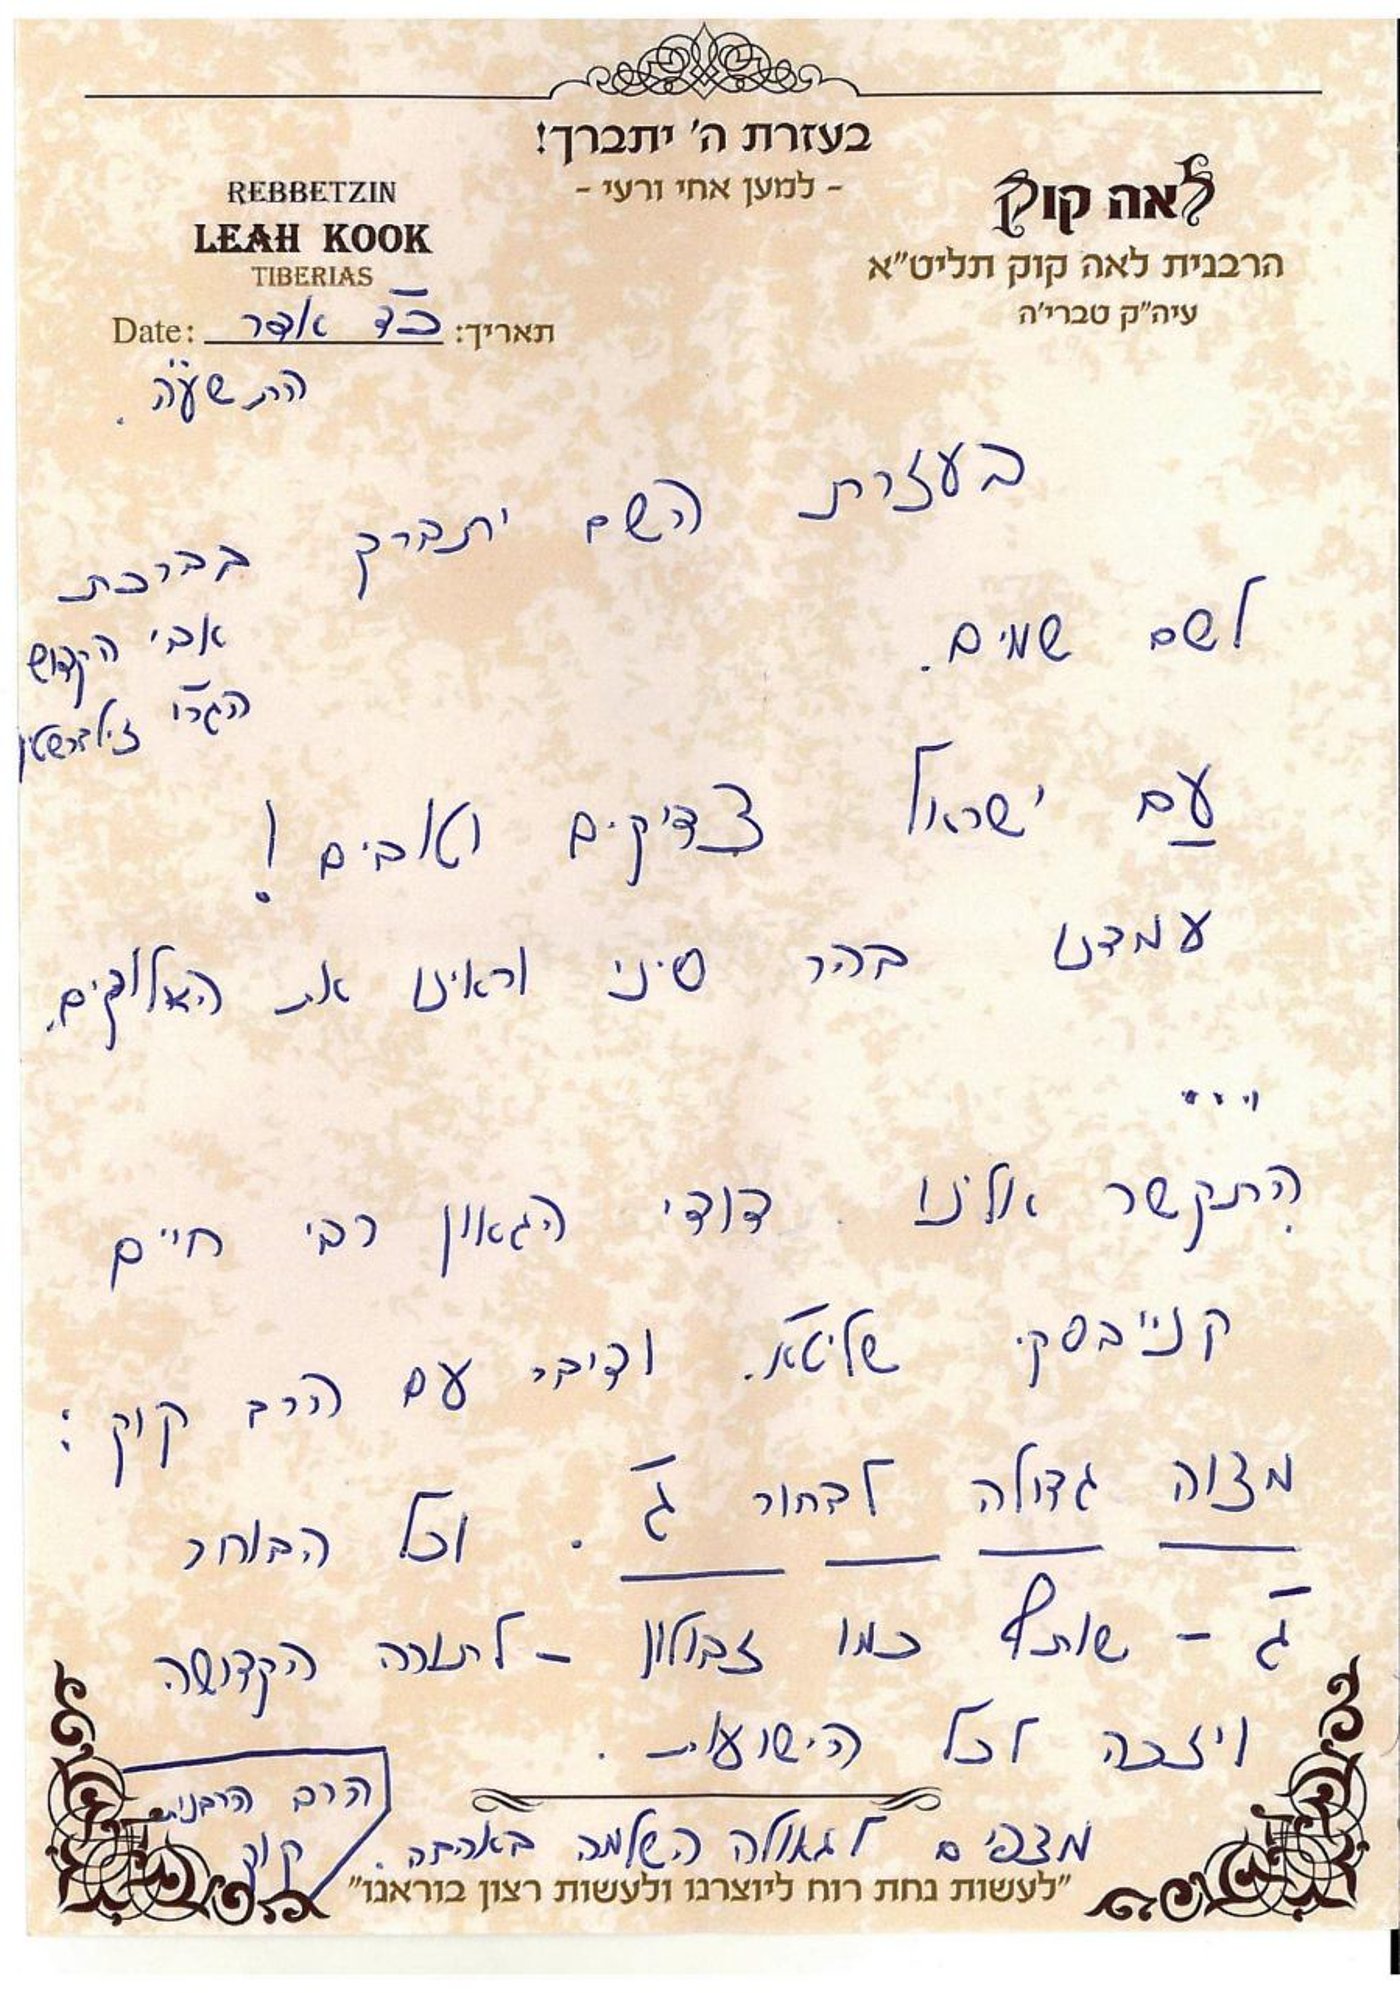 בעזרת ה' יתברך!
- למען אחי ורעי -
לאה קוק
הרבנית לאה קוק תליט"א
עיה"ק טברי'ה
REBBETZIN
LEAH KOOK
TIBERIAS
Date: כ"ד אדר תאריך:
התשע"ה.
בעזרת השם יתברך בברכת
אבי הקדוש
הגר"י זילברשטיין
לשם שמים.
עם ישראל צדיקים וטובים!
עמדנו בהר סיני וראינו את האלוקים.
...
התקשר אלינו דודי הגאון רבי חיים
קנייבסקי שליט"א. ודיבר עם הרב קוק:
מצוה גדולה לבחור ג'. וכל הבוחר
ג' - שותף כמו זבולון - לתורה הקדושה
ויזכה לכל הישועות.
מצפים לגאולה השלמה באהבה.
הרב והרבנית
קוק
"לעשות נחת רוח ליוצרנו ולעשות רצון בוראנו"